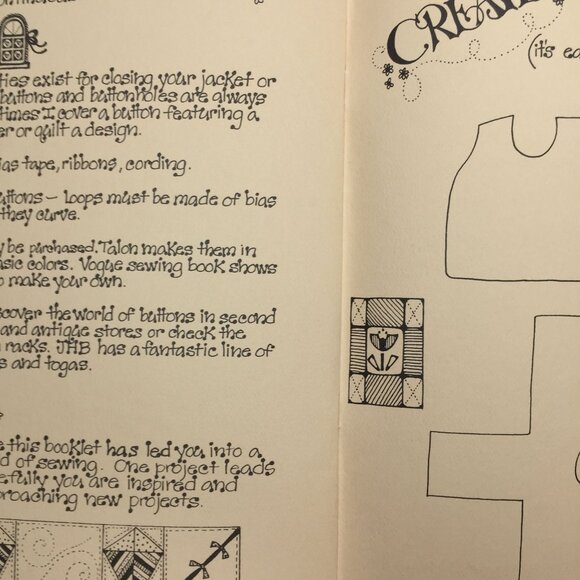 ties exist for closing your jacket or
buttons and buttonholes are always
times I cover a button featuring a
er or quilt a design.
ias tape, ribbons, cording.
uttons – Loops must be made of bias
they curve.
y be purchased. Talon makes them in
asic colors. Vogue sewing book shows
o make your own.
scover the world of buttons in second
and antique stores or check the
n racks. JHB has a fantastic line of
s and togas.
e this booklet has led you into a
d of sewing. One project leads
efully you are inspired and
proaching new projects.
CREA
(it's ea